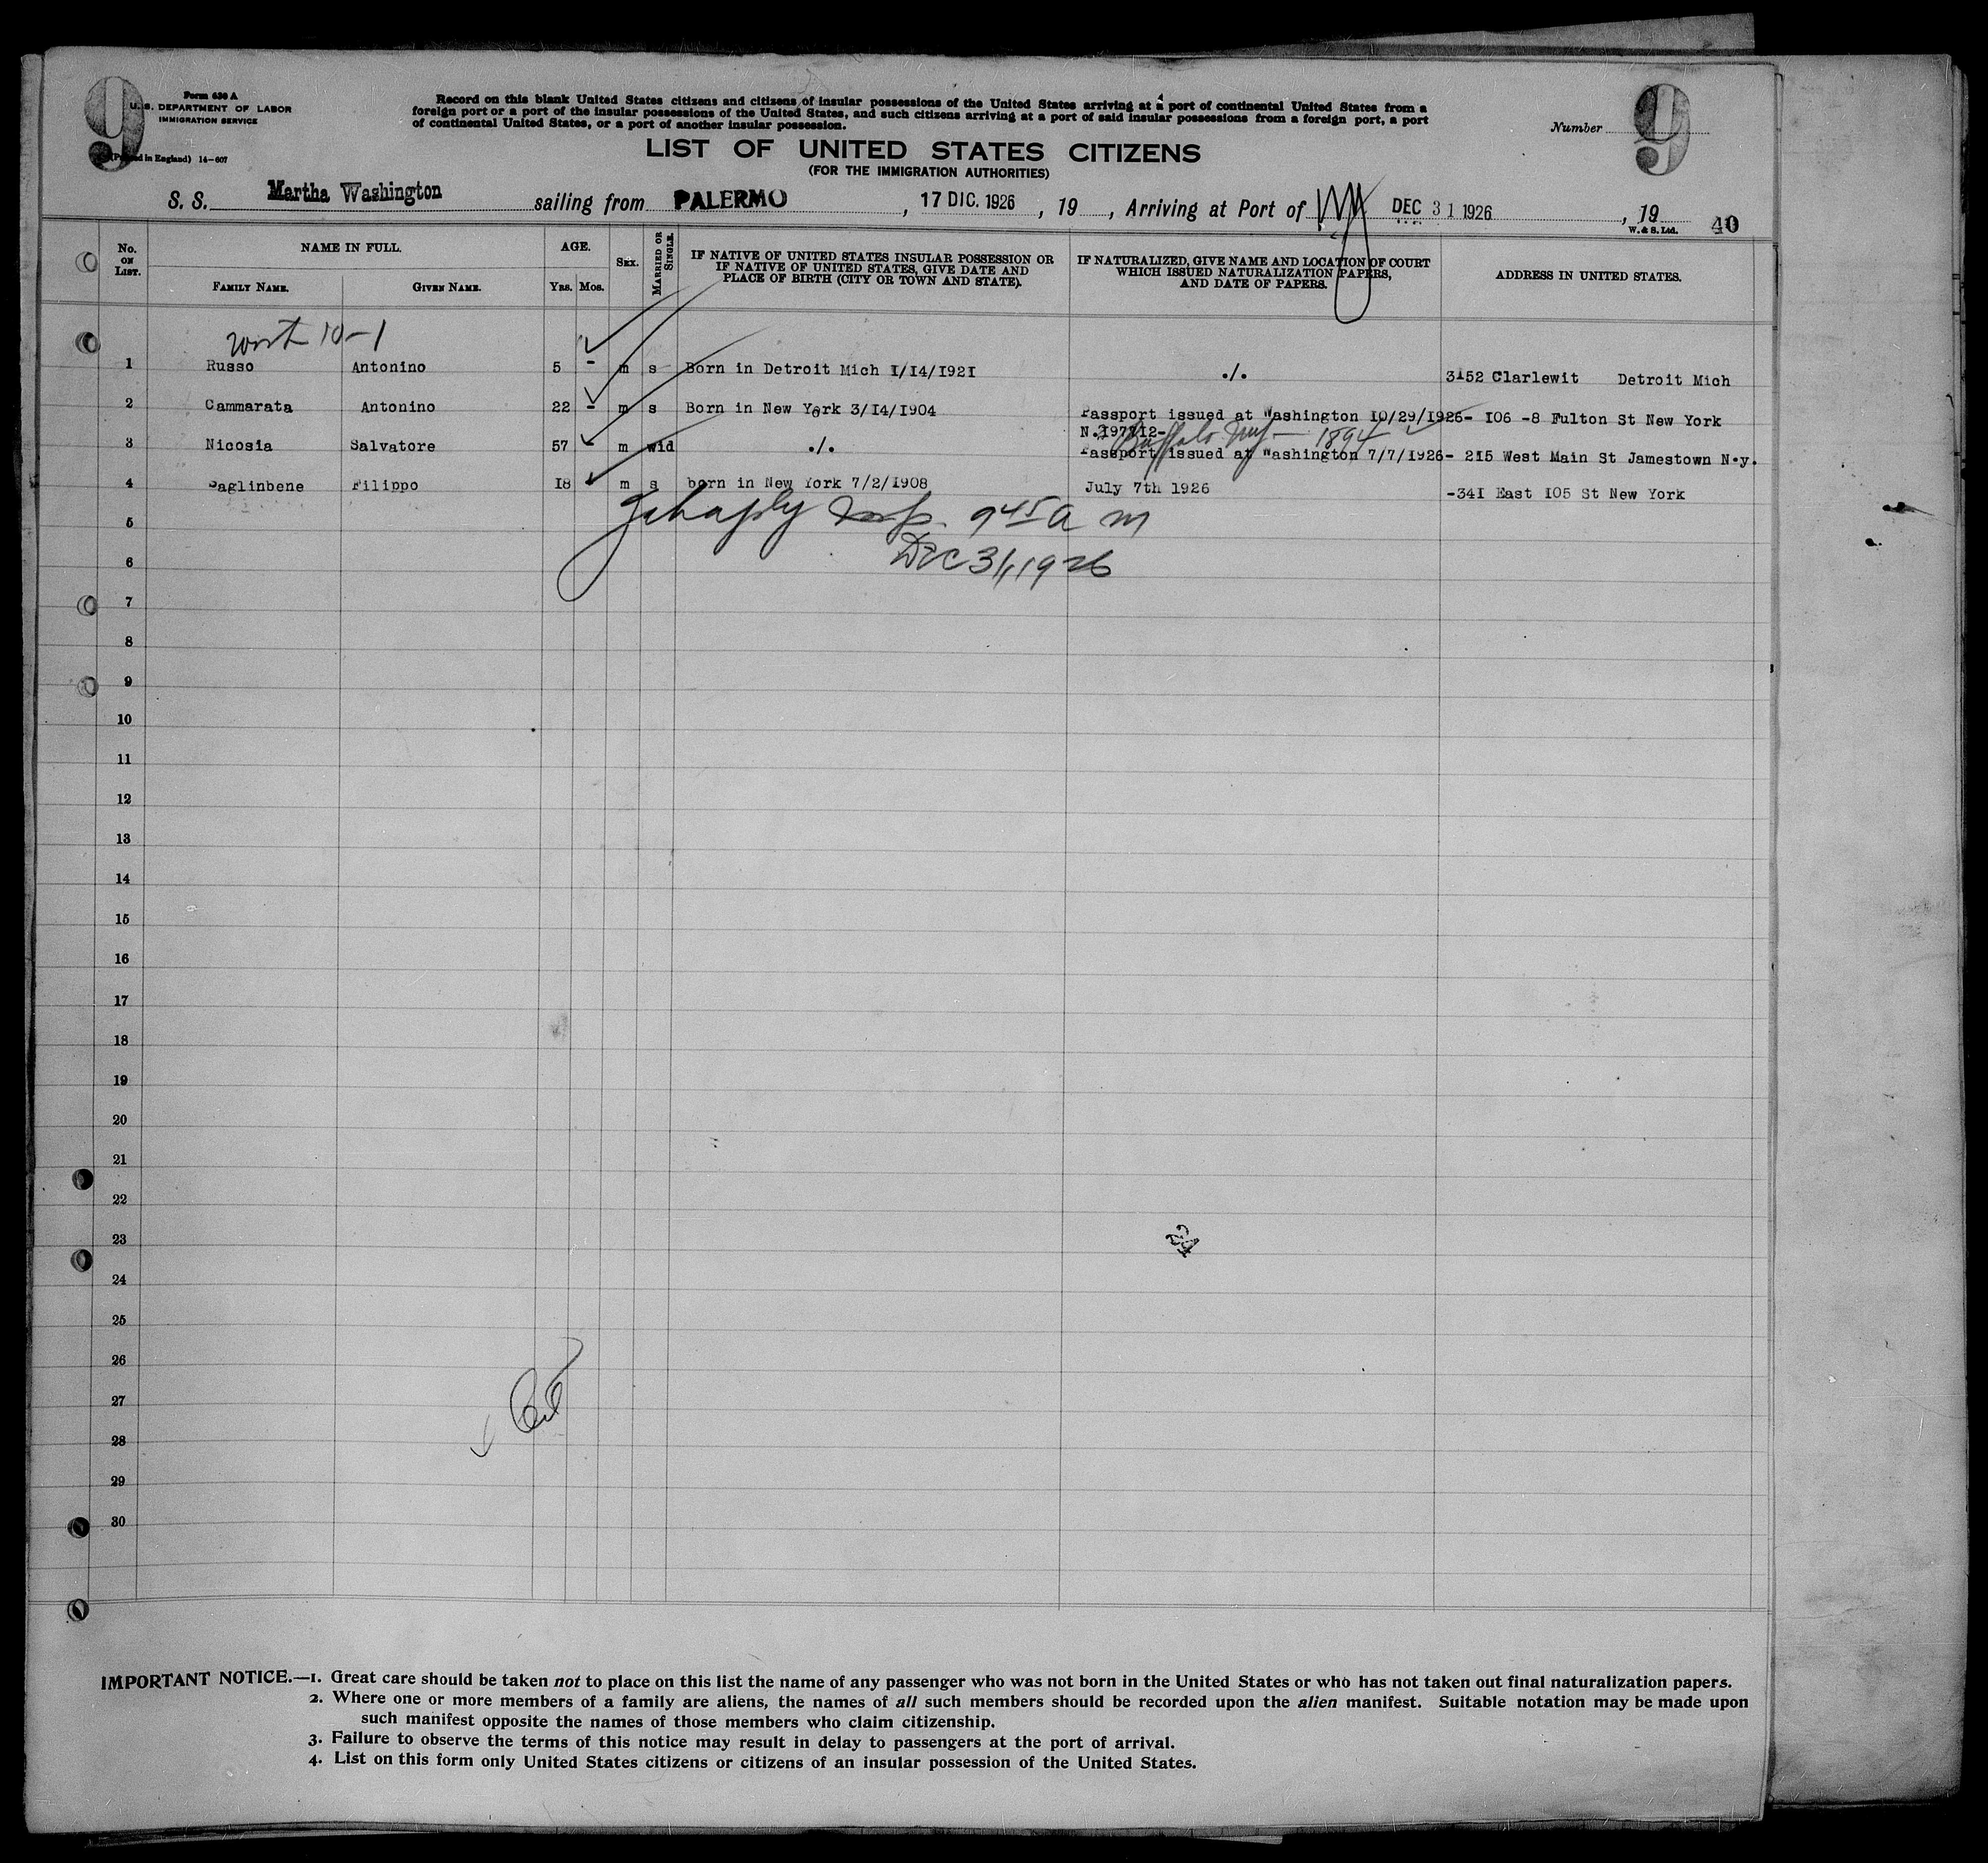 9
Form 630 A
U. S. DEPARTMENT OF LABOR
IMMIGRATION SERVICE
(Printed in England) 14—607
Record on this blank United States citizens and citizens of insular possessions of the United States arriving at a port of continental United States from a
foreign port or a port of the insular possessions of the United States, and such citizens arriving at a port of said insular possessions from a foreign port, a port
of continental United States, or a port of another insular possession.
Number 9
LIST OF UNITED STATES CITIZENS
(FOR THE IMMIGRATION AUTHORITIES)
S. S. Martha Washington sailing from PALERMO, 17 DIC. 1926, 19 , Arriving at Port of NY DEC 31 1926, 19
W. & S. Ltd.
40
No. ON LIST.
NAME IN FULL.
FAMILY NAME. GIVEN NAME.
AGE.
Yrs. Mos.
SEX.
MARRIED OR SINGLE.
IF NATIVE OF UNITED STATES INSULAR POSSESSION OR
IF NATIVE OF UNITED STATES, GIVE DATE AND
PLACE OF BIRTH (CITY OR TOWN AND STATE).
IF NATURALIZED, GIVE NAME AND LOCATION OF COURT
WHICH ISSUED NATURALIZATION PAPERS,
AND DATE OF PAPERS.
ADDRESS IN UNITED STATES.
10-1
1 Russo Antonino 5 - m s Born in Detroit Mich I/I4/I92I ./. 3152 Clarlewit Detroit Mich
2 Cammarata Antonino 22 - m s Born in New York 3/I4/I904 Passport issued at Washington I0/29/I926- I06 -8 Fulton St New York
Buffalo 1894
3 Nicosia Salvatore 57 - m wid ./. Passport issued at Washington 7/7/I926- 2I5 West Main St Jamestown N.y.
4 Paglinbene Filippo I8 m s born in New York 7/2/I908 July 7th I926 -34I East I05 St New York
5
Insp. 9 45 a m
6
Dec 31, 1926
7
8
9
10
11
12
13
14
15
16
17
18
19
20
21
22
23
24
24
25
26
27
28
29
30
IMPORTANT NOTICE.—1. Great care should be taken not to place on this list the name of any passenger who was not born in the United States or who has not taken out final naturalization papers.
2. Where one or more members of a family are aliens, the names of all such members should be recorded upon the alien manifest. Suitable notation may be made upon
such manifest opposite the names of those members who claim citizenship.
3. Failure to observe the terms of this notice may result in delay to passengers at the port of arrival.
4. List on this form only United States citizens or citizens of an insular possession of the United States.